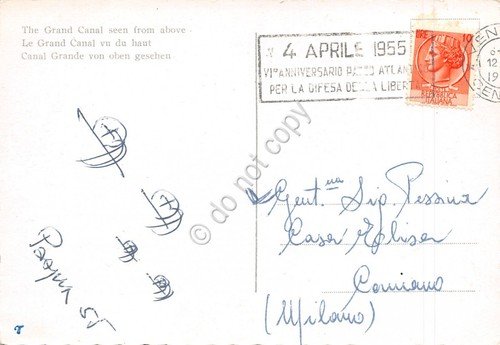 The Grand Canal seen from above
Le Grand Canal vu du haut
Canal Grande von oben gesehen
4 APRILE 1955
VI° ANNIVERSARIO PATTO ATLANT
PER LA DIFESA DELLA LIBERT
LIRE 10
REPUBBLICA
ITALIANA
12
19
do not copy
Gent.ma Sig. Pessina
Casa
(Milano)
Pasqua 55